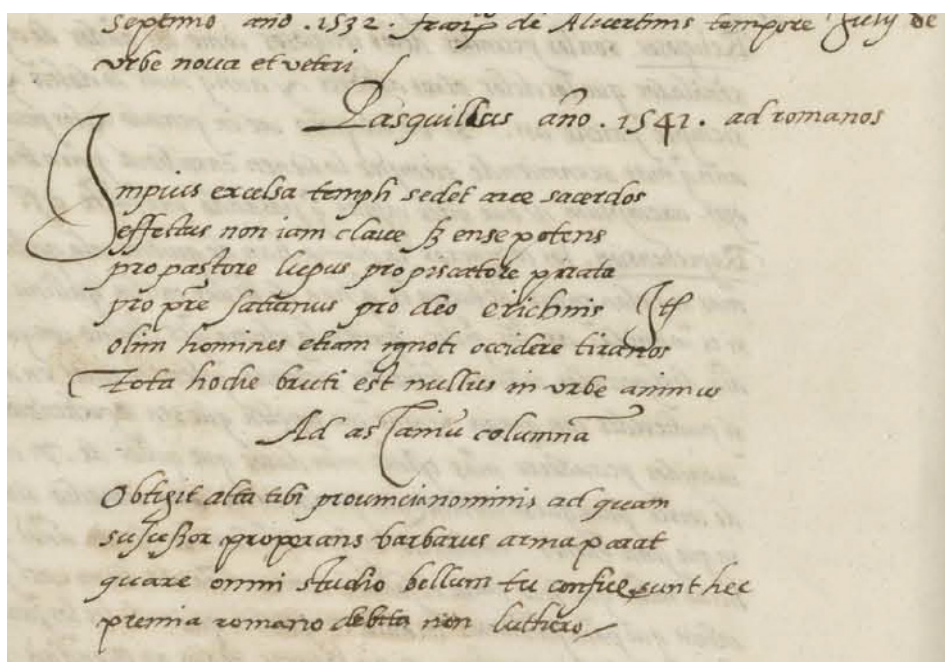 Septimo año .1532. franco de Aluertinis tempore Julij de
vrbe noua et veteri
Pasquillus año .1541. ad romanos
Impius excelsa templi sedet arce sacerdos
effectus non iam claue sz ense potens
pro pastore lupus, pro piscatore pirata
pro pre satanus pro deo erichnis
olim homines etiam ignoti occidere tiranos
Tota hodie bruti est nullus in vrbe animus
Ad ascaniu columna
Obtigit alta tibi prouincia nominis ad quam
sucussor properans barbarus arma parat
quare omni studio bellum tu confice sunt hec
premia romano debita non luthero